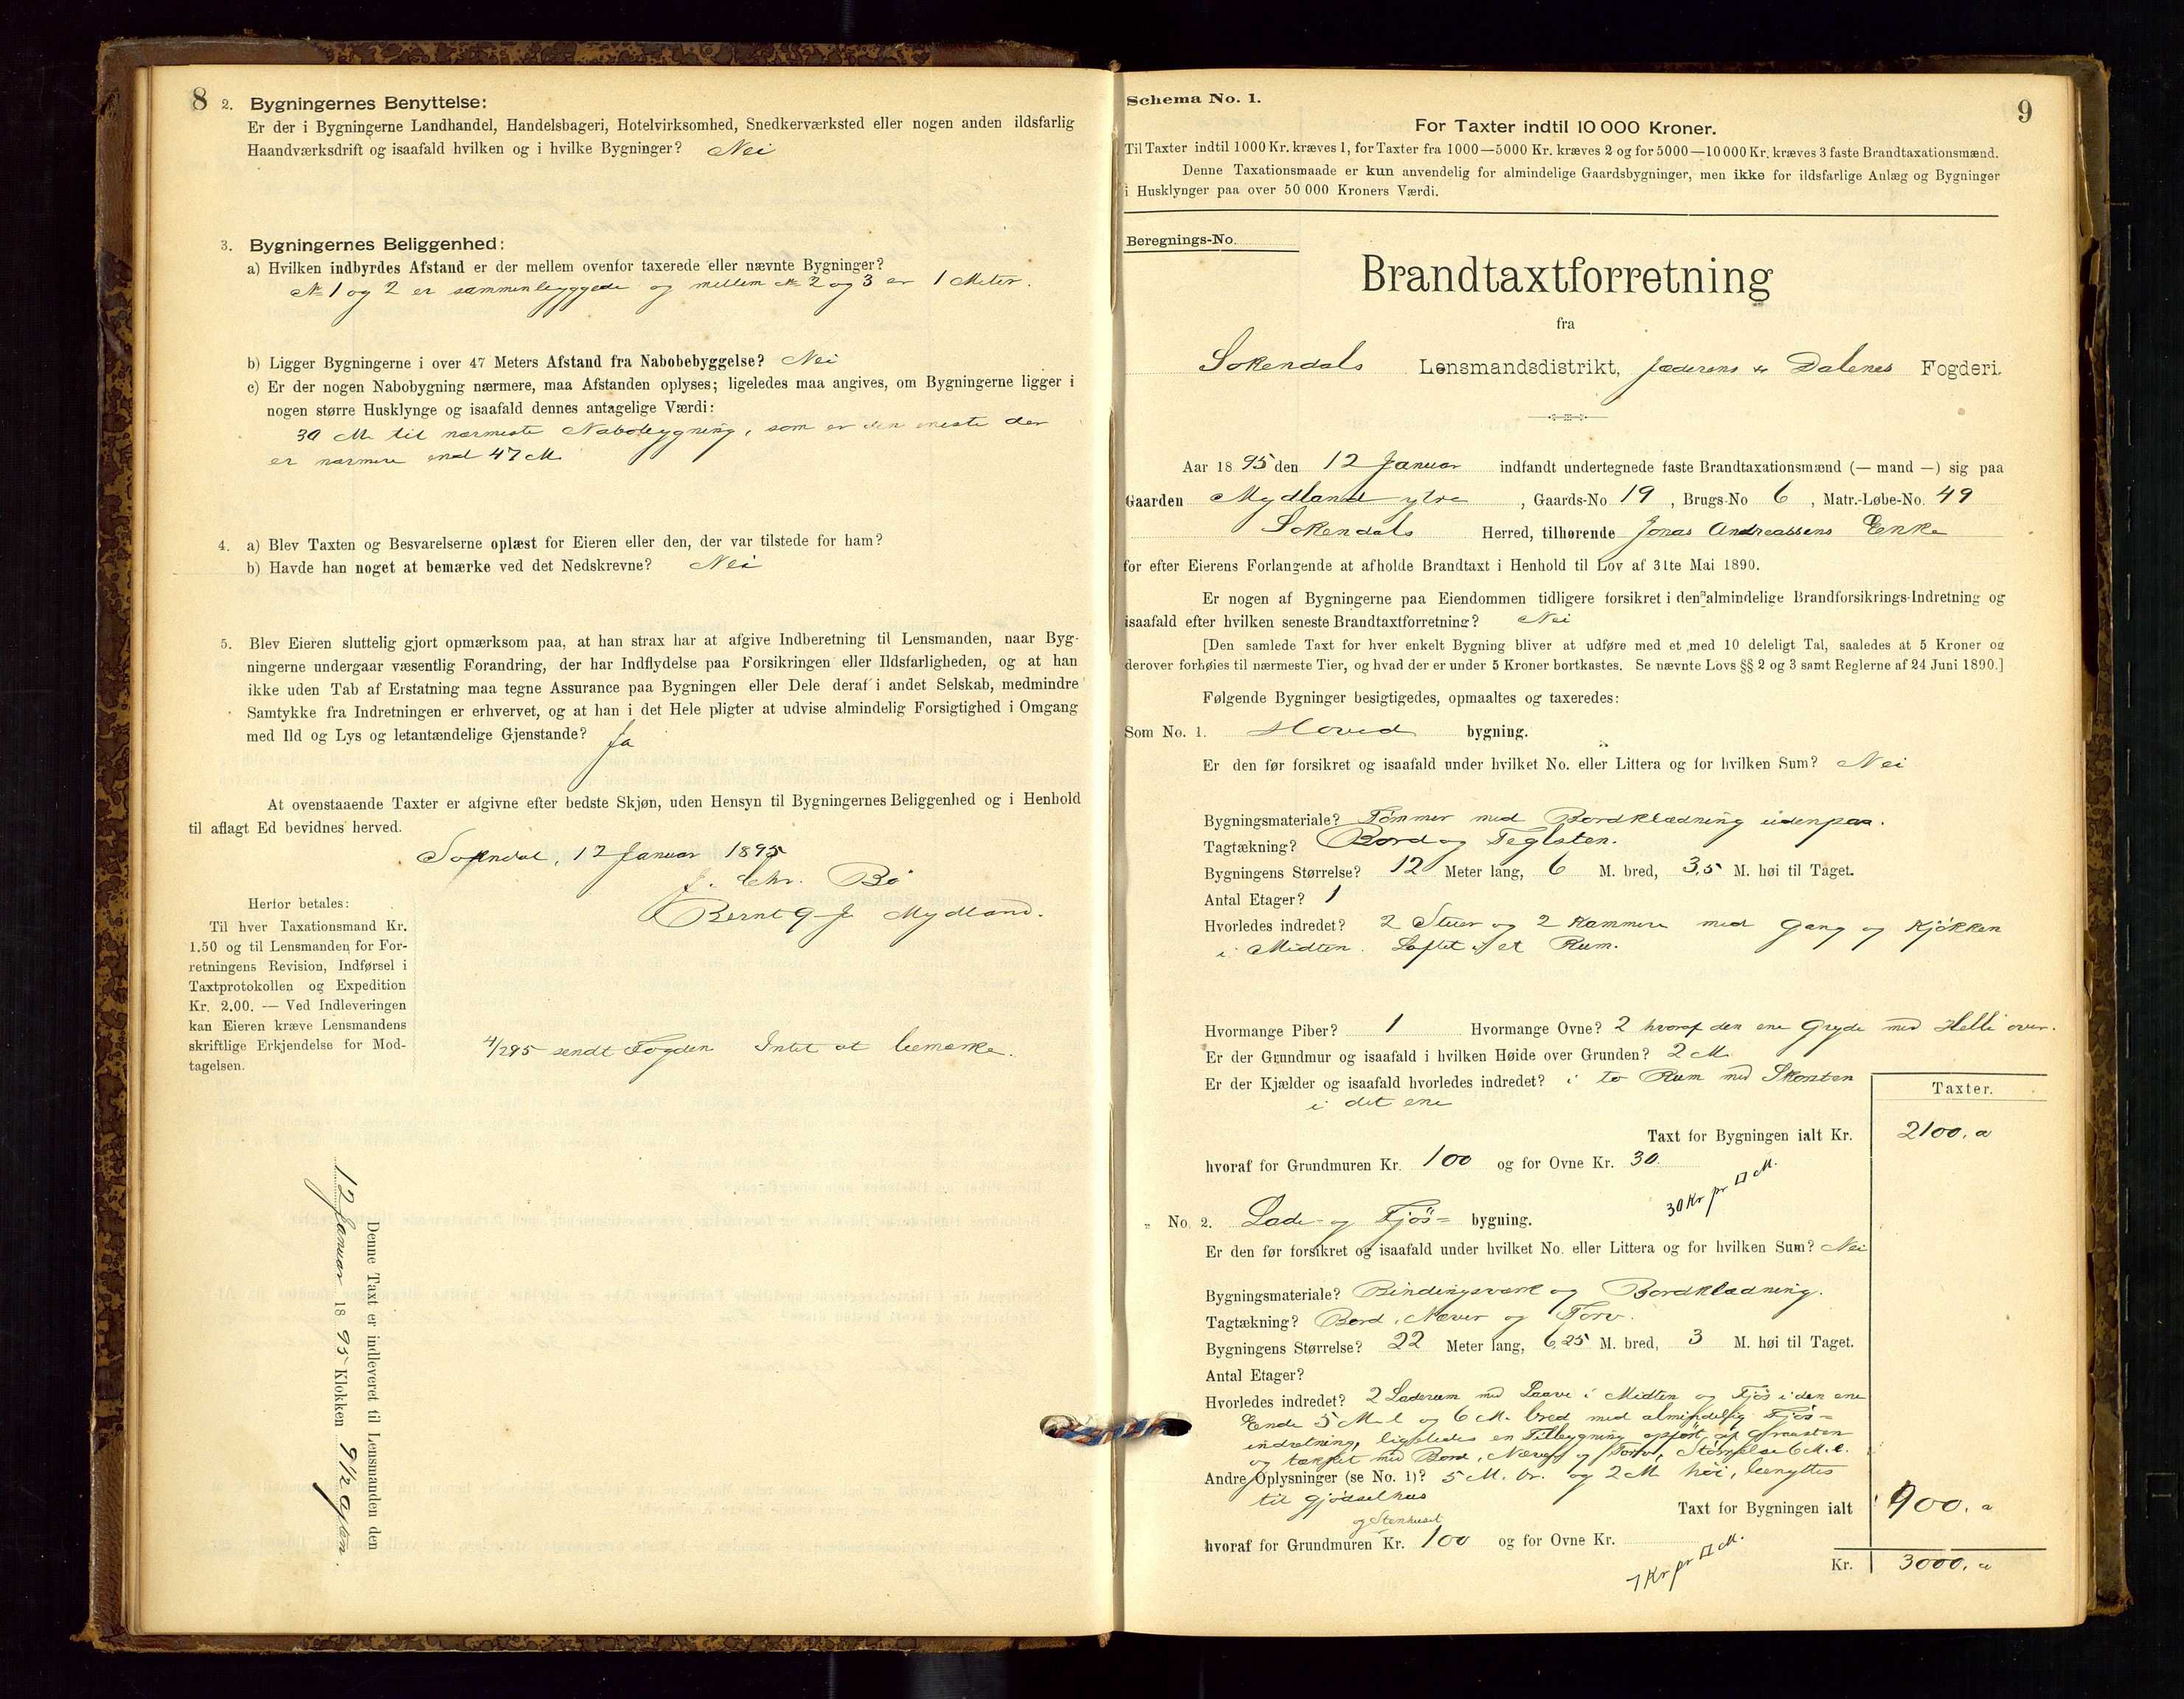 8
2. Bygningernes Benyttelse:
Er der i Bygningerne Landhandel, Handelsbageri, Hotelvirksomhed, Snedkerværksted eller nogen anden ildsfarlig
Haandværksdrift og isaafald hvilken og i hvilke Bygninger? Nei
3. Bygningernes Beliggenhed:
a) Hvilken indbyrdes Afstand er der mellem ovenfor taxerede eller nævnte Bygninger?
No 1 og 2 er sammenbyggede og mellem No 2 og 3 er 1 Meter.
b) Ligger Bygningerne i over 47 Meters Afstand fra Nabobebyggelse? Nei
c) Er der nogen Nabobygning nærmere, maa Afstanden oplyses; ligeledes maa angives, om Bygningerne ligger i
nogen større Husklynge og isaafald dennes antagelige Værdi:
30 M. til nærmeste Nabobygning, som er den eneste der
er nærmere end 47 M.
4. a) Blev Taxten og Besvarelserne oplæst for Eieren eller den, der var tilstede for ham?
b) Havde han noget at bemærke ved det Nedskrevne? Nei
5. Blev Eieren sluttelig gjort opmærksom paa, at han strax har at afgive Indberetning til Lensmanden, naar Byg-
ningerne undergaar væsentlig Forandring, der har Indflydelse paa Forsikringen eller Ildsfarligheden, og at han
ikke uden Tab af Erstatning maa tegne Assurance paa Bygningen eller Dele deraf i andet Selskab, medmindre
Samtykke fra Indretningen er erhvervet, og at han i det Hele pligter at udvise almindelig Forsigtighed i Omgang
med Ild og Lys og letantændelige Gjenstande? Ja
At ovenstaaende Taxter er afgivne efter bedste Skjøn, uden Hensyn til Bygningernes Beliggenhed og i Henhold
til aflagt Ed bevidnes herved.
Sokndal, 12 Januar 1895
J. Chr. Bø
Bernt J. Mydland.
Herfor betales:
Til hver Taxationsmand Kr.
1.50 og til Lensmanden for For-
retningens Revision, Indførsel i
Taxtprotokollen og Expedition
Kr. 2.00. — Ved Indleveringen
kan Eieren kræve Lensmandens
skriftlige Erkjendelse for Mod-
tagelsen.
4/2 95 sendt Fogden Intet at bemærke.
Denne Taxt er indleveret til Lensmanden den
12 Januar 1895 Klokken 9 1/2 Aften.
9
Schema No. 1.
For Taxter indtil 10 000 Kroner.
Til Taxter indtil 1000 Kr. kræves 1, for Taxter fra 1000—5000 Kr. kræves 2 og for 5000—10 000 Kr. kræves 3 faste Brandtaxationsmænd.
Denne Taxationsmaade er kun anvendelig for almindelige Gaardsbygninger, men ikke for ildsfarlige Anlæg og Bygninger
i Husklynger paa over 50 000 Kroners Værdi.
Beregnings-No.
Brandtaxtforretning
fra
Sokendals Lensmandsdistrikt, Jæderens & Dalenes Fogderi.
Aar 1895 den 12 Januar indfandt undertegnede faste Brandtaxationsmænd (— mand —) sig paa
Gaarden Mydland ytre, Gaards-No 19, Brugs-No 6, Matr.-Løbe-No. 49
Sokendals Herred, tilhørende Jonas Andreassens Enke
for efter Eierens Forlangende at afholde Brandtaxt i Henhold til Lov af 31te Mai 1890.
Er nogen af Bygningerne paa Eiendommen tidligere forsikret i den almindelige Brandforsikrings-Indretning og
isaafald efter hvilken seneste Brandtaxtforretning? Nei
[Den samlede Taxt for hver enkelt Bygning bliver at udføre med et med 10 deleligt Tal, saaledes at 5 Kroner og
derover forhøies til nærmeste Tier, og hvad der er under 5 Kroner bortkastes. Se nævnte Lovs §§ 2 og 3 samt Reglerne af 24 Juni 1890.]
Følgende Bygninger besigtigedes, opmaaltes og taxeredes:
Som No. 1. Hoved bygning.
Er den før forsikret og isaafald under hvilket No. eller Littera og for hvilken Sum? Nei
Bygningsmateriale? Tømmer med Bordklædning udenpaa.
Tagtækning? Bord og Teglsten.
Bygningens Størrelse? 12 Meter lang, 6 M. bred, 3,5 M. høi til Taget.
Antal Etager? 1
Hvorledes indredet? 2 Stuer og 2 Kammere med Gang og Kjøkken
i Midten. Loftet i et Rum.
Hvormange Piber? 1 Hvormange Ovne? 2 hvoraf den ene Gryde med Helle over.
Er der Grundmur og isaafald i hvilken Høide over Grunden? 2 M.
Er der Kjælder og isaafald hvorledes indredet? i to Rum med Skorsten
i det ene
Taxter.
Taxt for Bygningen ialt Kr. 2100.
hvoraf for Grundmuren Kr. 100 og for Ovne Kr. 30.
30 Kr pr □ M.
" No. 2. Lade- og Fjøs- bygning.
Er den før forsikret og isaafald under hvilket No. eller Littera og for hvilken Sum? Nei
Bygningsmateriale? Bindingsværk og Bordklædning.
Tagtækning? Bord, Næver og Torv.
Bygningens Størrelse? 22 Meter lang, 6,25 M. bred, 3 M. høi til Taget.
Antal Etager?
Hvorledes indredet? 2 Laderum med Laave i Midten og Fjøs i den ene
Ende 5 M. l. og 6 M. bred med almindelig Fjøs-
indretning, ligeledes en Tilbygning opført af Graasten
og tækket med Bord, Næver og Torv, Størrelse 6 M. l.
Andre Oplysninger (se No. 1)? 5 M. br. og 2 M høi, benyttes
til Gjødselhus
Taxt for Bygningen ialt 900.
og Stenhuset
hvoraf for Grundmuren Kr. 100 og for Ovne Kr.
7 Kr pr □ M.
Kr. 3000.